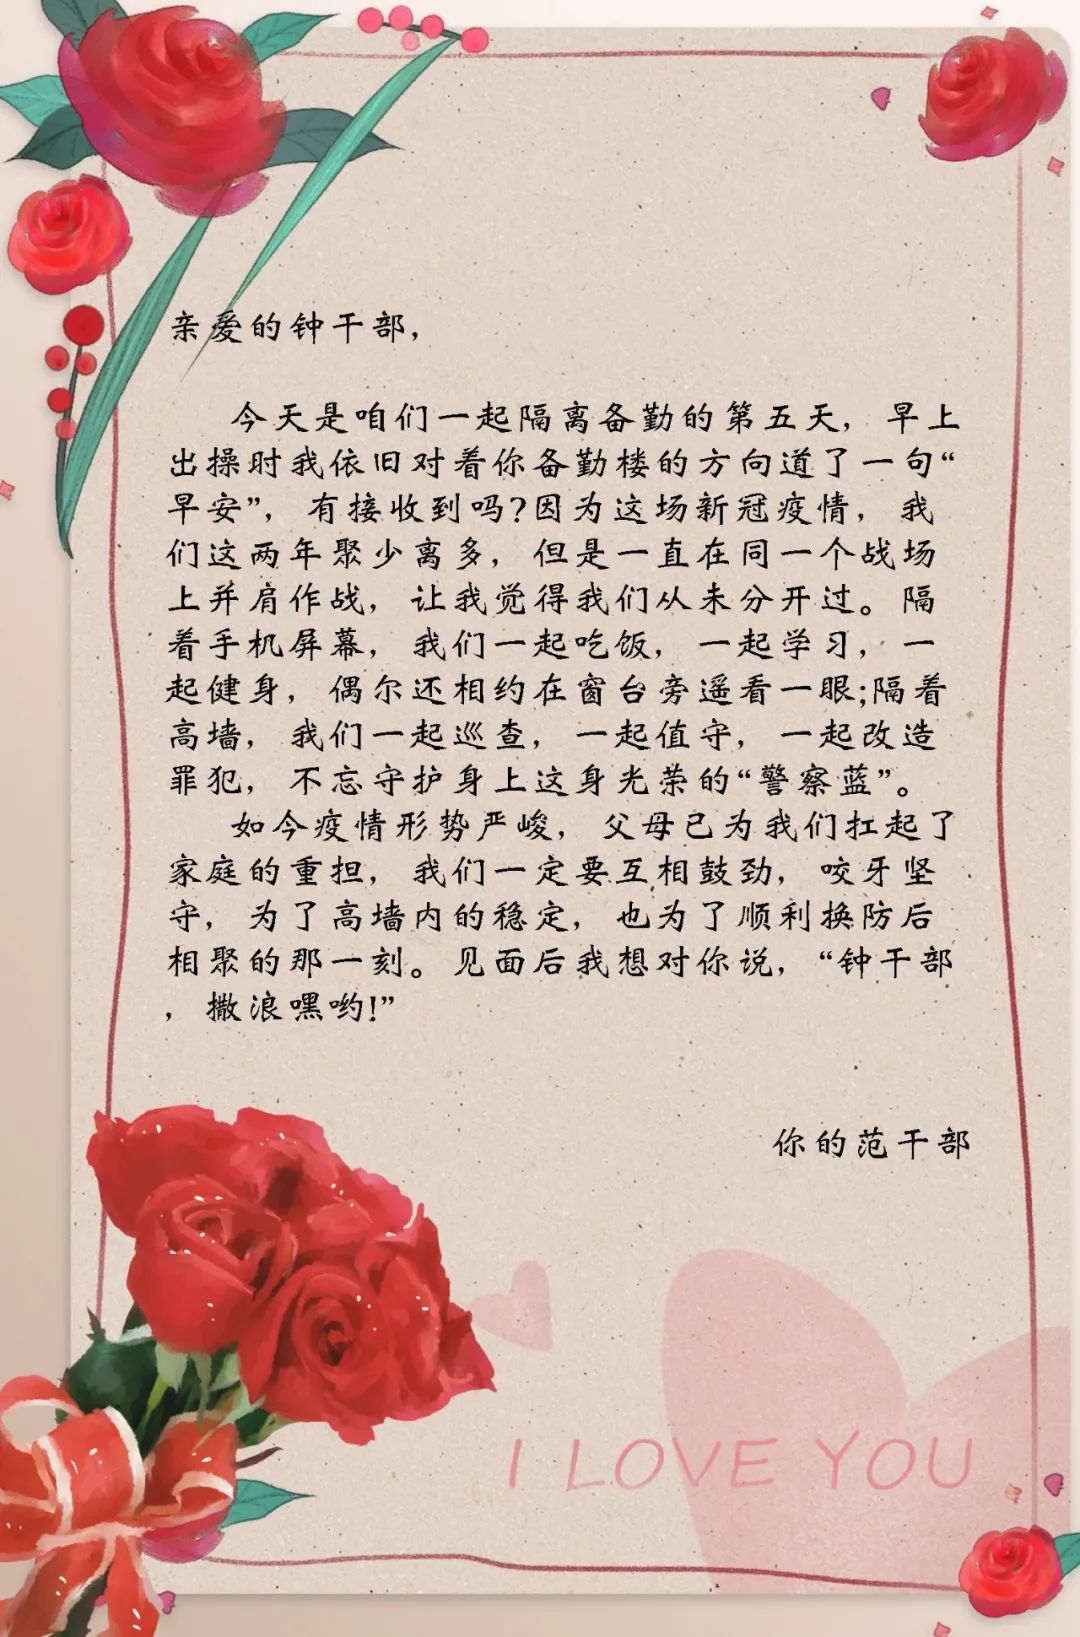 亲爱的钟干部，
今天是咱们一起隔离备勤的第五天，早上
出操时我依旧对着你备勤楼的方向道了一句“
早安”，有接收到吗?因为这场新冠疫情，我
们这两年聚少离多，但是一直在同一个战场
上并肩作战，让我觉得我们从未分开过。隔
着手机屏幕，我们一起吃饭，一起学习，一
起健身，偶尔还相约在窗台旁遥看一眼;隔着
高墙，我们一起巡查，一起值守，一起改造
罪犯，不忘守护身上这身光荣的“警察蓝”。
如今疫情形势严峻，父母已为我们扛起了
家庭的重担，我们一定要互相鼓劲，咬牙坚
守，为了高墙内的稳定，也为了顺利换防后
相聚的那一刻。见面后我想对你说，“钟干部
，撒浪嘿哟!”
你的范干部
I LOVE YOU